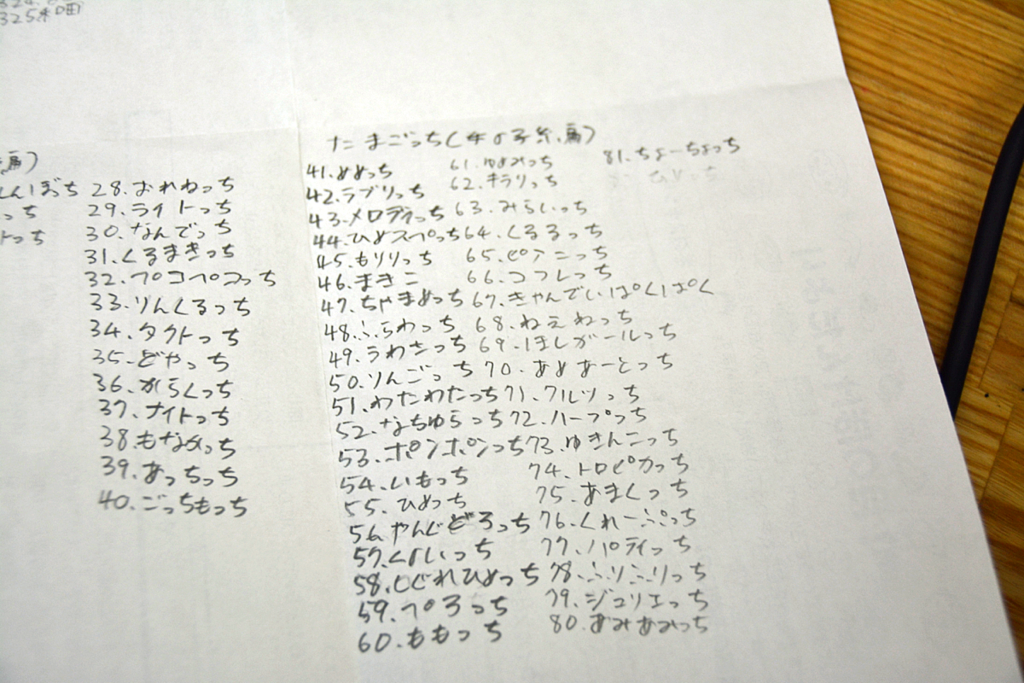 325
28.おれねっち
29.ライトっち
30.なんでっち
31.くるまきっち
32.ペコペコっち
33.りんくるっち
34.タクトっち
35.どやっち
36.からくっち
37.ナイトっち
38.もなめっち
39.あっちっち
40.ごっちもっち
たまごっち(
41.めめっち
42.ラブリっち
43.メロディっち
44.ひめスペっち
45.もりりっち
46.まきこ
47.ちゃまめっち
48.ふらわっち
49.うわさっち
50.りんごっち
51.わたわたっち
52.なちゅらっち
53.ポンポンっち
54.いもっち
55.ひめっち
56.やんぐどろっち
57.くいっち
58.しぐれひめっち
59.ペろっち
60.ももっち
61.ゆめみっち
62.キラリっち
63.みらいっち
64.くるるっち
65.ピアニっち
66.コフレっち
67.きゃんでぃぱくぱく
68.ねえねっち
69.ほしがールっち
70.あめあーとっち
71.フルツっち
72.ハープっち
73.ゆきんこっち
74.トロピカっち
75.あまくっち
76.くれーぷっち
77.パティっち
78.ふりふりっち
79.ジュリエっち
80.あみあみっち
81.ちょーちょっち